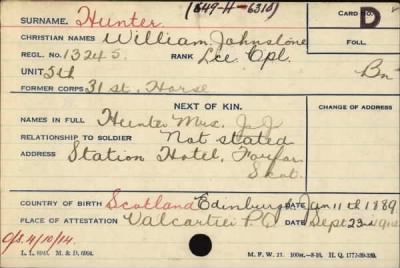 (649-H-6310)
CARD NO. D
SURNAME. Hunter.
CHRISTIAN NAMES William Johnstone
FOLL.
REGL. NO. 13245. RANK Lce. Cpl.
UNIT 5th Bn
FORMER CORPS 31st. Horse
NEXT OF KIN.
CHANGE OF ADDRESS
NAMES IN FULL Hunter Mrs. J.J.
RELATIONSHIP TO SOLDIER Not stated
ADDRESS Station Hotel, Forfar
Scot.
COUNTRY OF BIRTH Scotland Edinburgh DATE Jan 11th 1889
PLACE OF ATTESTATION Valcartier P.Q DATE Sept 23rd 1914
O/S. 4/10/14.
M. & D. 6994.
M. F. W. 21.